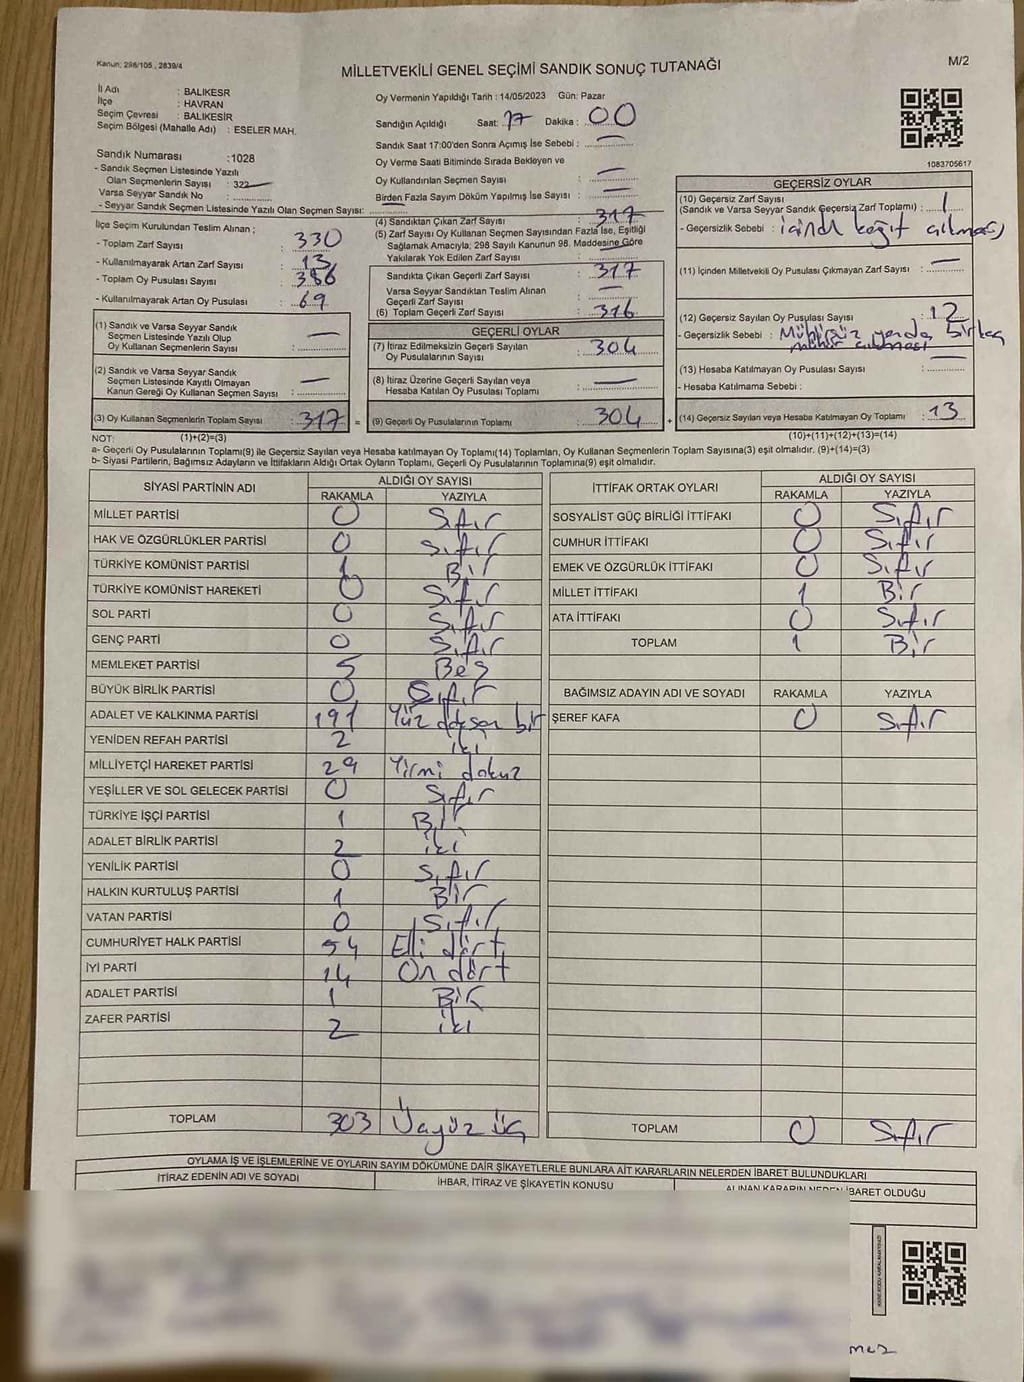 Kanun; 298/105 , 2839/4
MİLLETVEKİLİ GENEL SEÇİMİ SANDIK SONUÇ TUTANAĞI
M/2
İl Adı : BALIKESR
İlçe : HAVRAN
Seçim Çevresi : BALIKESİR
Seçim Bölgesi (Mahalle Adı) : ESELER MAH.
Sandık Numarası :1028
- Sandık Seçmen Listesinde Yazılı
Olan Seçmenlerin Sayısı : 322
Varsa Seyyar Sandık No :
- Seyyar Sandık Seçmen Listesinde Yazılı Olan Seçmen Sayısı:
İlçe Seçim Kurulundan Teslim Alınan ;
- Toplam Zarf Sayısı : 330
- Kullanılmayarak Artan Zarf Sayısı : 13
- Toplam Oy Pusulası Sayısı : 386
- Kullanılmayarak Artan Oy Pusulası : 69
(1) Sandık ve Varsa Seyyar Sandık
Seçmen Listesinde Yazılı Olup
Oy Kullanan Seçmenlerin Sayısı : —
(2) Sandık ve Varsa Seyyar Sandık
Seçmen Listesinde Kayıtlı Olmayan
Kanun Gereği Oy Kullanan Seçmen Sayısı : —
(3) Oy Kullanan Seçmenlerin Toplam Sayısı : 317 =
Oy Vermenin Yapıldığı Tarih : 14/05/2023 Gün: Pazar
Sandığın Açıldığı Saat: 17 Dakika : 00
Sandık Saat 17:00'den Sonra Açımış İse Sebebi : —
Oy Verme Saati Bitiminde Sırada Bekleyen ve
Oy Kullandırılan Seçmen Sayısı : —
Birden Fazla Sayım Döküm Yapılmış İse Sayısı : —
(4) Sandıktan Çıkan Zarf Sayısı : 317
(5) Zarf Sayısı Oy Kullanan Seçmen Sayısından Fazla İse, Eşitliği
Sağlamak Amacıyla; 298 Sayılı Kanunun 98. Maddesine Göre
Yakılarak Yok Edilen Zarf Sayısı : —
Sandıkta Çıkan Geçerli Zarf Sayısı : 317
Varsa Seyyar Sandıktan Teslim Alınan
Geçerli Zarf Sayısı : —
(6) Toplam Geçerli Zarf Sayısı : 316
GEÇERLİ OYLAR
(7) İtiraz Edilmeksizin Geçerli Sayılan
Oy Pusulalarının Sayısı : 304
(8) İtiraz Üzerine Geçerli Sayılan veya
Hesaba Katılan Oy Pusulası Toplamı : —
(9) Geçerli Oy Pusulalarının Toplamı : 304 +
1083705617
GEÇERSİZ OYLAR
(10) Geçersiz Zarf Sayısı
(Sandık ve Varsa Seyyar Sandık Geçersiz Zarf Toplamı) : 1
- Geçersizlik Sebebi : kağıt çıkması
(11) İçinden Milletvekili Oy Pusulası Çıkmayan Zarf Sayısı : —
(12) Geçersiz Sayılan Oy Pusulası Sayısı : 12
- Geçersizlik Sebebi : Mühürsüz yerde birkaç
mühür
(13) Hesaba Katılmayan Oy Pusulası Sayısı : —
- Hesaba Katılmama Sebebi :
(14) Geçersiz Sayılan veya Hesaba Katılmayan Oy Toplamı : 13
NOT: (1)+(2)=(3)
(10)+(11)+(12)+(13)=(14)
a- Geçerli Oy Pusulalarının Toplamı(9) ile Geçersiz Sayılan veya Hesaba katılmayan Oy Toplamı(14) Toplamları, Oy Kullanan Seçmenlerin Toplam Sayısına(3) eşit olmalıdır. (9)+(14)=(3)
b- Siyasi Partilerin, Bağımsız Adayların ve İttifakların Aldığı Ortak Oyların Toplamı, Geçerli Oy Pusulalarının Toplamına(9) eşit olmalıdır.
SİYASİ PARTİNİN ADI
ALDIĞI OY SAYISI
RAKAMLA YAZIYLA
MİLLET PARTİSİ 0 Sıfır
HAK VE ÖZGÜRLÜKLER PARTİSİ 0 Sıfır
TÜRKİYE KOMÜNİST PARTİSİ 1 Bir
TÜRKİYE KOMÜNİST HAREKETİ 0 Sıfır
SOL PARTİ 0 Sıfır
GENÇ PARTİ 0 Sıfır
MEMLEKET PARTİSİ 5 Beş
BÜYÜK BİRLİK PARTİSİ 0 Sıfır
ADALET VE KALKINMA PARTİSİ 191 Yüz doksan bir
YENİDEN REFAH PARTİSİ 2 iki
MİLLİYETÇİ HAREKET PARTİSİ 29 Yirmi dokuz
YEŞİLLER VE SOL GELECEK PARTİSİ 0 Sıfır
TÜRKİYE İŞÇİ PARTİSİ 1 Bir
ADALET BİRLİK PARTİSİ 2 iki
YENİLİK PARTİSİ 0 Sıfır
HALKIN KURTULUŞ PARTİSİ 1 Bir
VATAN PARTİSİ 0 Sıfır
CUMHURİYET HALK PARTİSİ 54 Elli dört
İYİ PARTİ 14 On dört
ADALET PARTİSİ 1 Bir
ZAFER PARTİSİ 2 iki
TOPLAM 303 Üçyüz üç
İTTİFAK ORTAK OYLARI
ALDIĞI OY SAYISI
RAKAMLA YAZIYLA
SOSYALİST GÜÇ BİRLİĞİ İTTİFAKI 0 Sıfır
CUMHUR İTTİFAKI 0 Sıfır
EMEK VE ÖZGÜRLÜK İTTİFAKI 0 Sıfır
MİLLET İTTİFAKI 1 Bir
ATA İTTİFAKI 0 Sıfır
TOPLAM 1 Bir
BAĞIMSIZ ADAYIN ADI VE SOYADI RAKAMLA YAZIYLA
ŞEREF KAFA 0 Sıfır
TOPLAM 0 Sıfır
OYLAMA İŞ VE İŞLEMLERİNE VE OYLARIN SAYIM DÖKÜMÜNE DAİR ŞİKAYETLERLE BUNLARA AİT KARARLARIN NELERDEN İBARET BULUNDUKLARI
İTİRAZ EDENİN ADI VE SOYADI İHBAR, İTİRAZ VE ŞİKAYETİN KONUSU ALINAN KARARIN NEDEN İBARET OLDUĞU